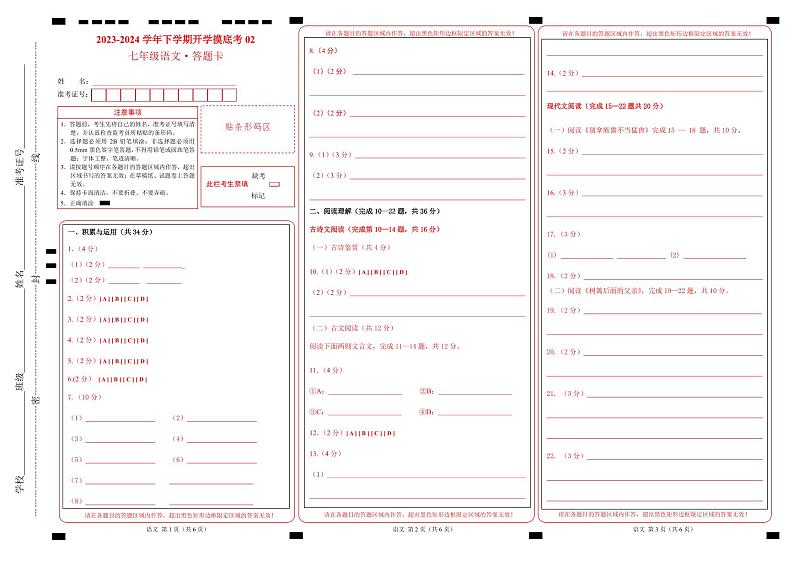 学校
班级
姓名
准考证号
密
封
线
2023-2024 学年下学期开学摸底考 02
七年级语文·答题卡
姓 名：
准考证号：
注意事项
1．答题前，考生先将自己的姓名、准考证号填写清
楚，并认真检查监考员所粘贴的条形码。
2．选择题必须用 2B 铅笔填涂；非选择题必须用
0.5mm 黑色签字笔答题，不得用铅笔或圆珠笔答
题；字体工整、笔迹清晰。
3．请按题号顺序在各题目的答题区域内作答，超出
区域书写的答案无效；在草稿纸、试题卷上答题
无效。
4．保持卡面清洁，不要折叠、不要弄破。
5．正确填涂
贴条形码区
此栏考生禁填
缺考
标记
一、积累与运用（共 34 分）
1.（4 分）
（1）（2 分）
（2）（2 分）
2.（2 分）[ A ] [ B ] [ C ] [ D ]
3.（2 分）[ A ] [ B ] [ C ] [ D ]
4.（2 分）[ A ] [ B ] [ C ] [ D ]
5.（2 分）[ A ] [ B ] [ C ] [ D ]
6.(2 分） [ A ] [ B ] [ C ] [ D ]
7.（10 分）
（1） （2）
（3） （4）
（5） （6）
（7）
（8）
请在各题目的答题区域内作答，超出黑色矩形边框限定区域的答案无效！
语文 第 1 页（共 6 页）
请在各题目的答题区域内作答，超出黑色矩形边框限定区域的答案无效！
8.（4 分）
（1）（2 分）
（2）（2 分）
9.（1）（3 分）
（2）（3 分）
二、阅读理解（完成 10—22 题，共 36 分）
古诗文阅读（完成第 10—14 题，共 16 分）
（一）古诗鉴赏（共 4 分）
10.（1）（2 分）[ A ] [ B ] [ C ] [ D ]
（2）（2 分）
（二）古文阅读（共 12 分）
阅读下面两则文言文，完成 11—14 题，共 12 分。
11.（4 分）
①A： ②B：
③C： ④D：
12.（2 分）[ A ] [ B ] [ C ] [ D ]
13.（4 分）
（1）
请在各题目的答题区域内作答，超出黑色矩形边框限定区域的答案无效！
语文 第 2 页（共 6 页）
请在各题目的答题区域内作答，超出黑色矩形边框限定区域的答案无效！
14.（2 分）
现代文阅读（完成 15—22 题共 20 分）
（一）阅读《别拿熊猫不当猛兽》完成 15 — 18 题，共 10 分。
15.（2 分）
16.（3 分）
17.（3 分）
（1） （2）
18.（2 分）
（二）阅读《树篱后面的父亲》，完成 19—22 题，共 10 分。
19.（2 分）
20.（2 分）
21. （3 分）
22. （3 分）
请在各题目的答题区域内作答，超出黑色矩形边框限定区域的答案无效！
语文 第 3 页（共 6 页）